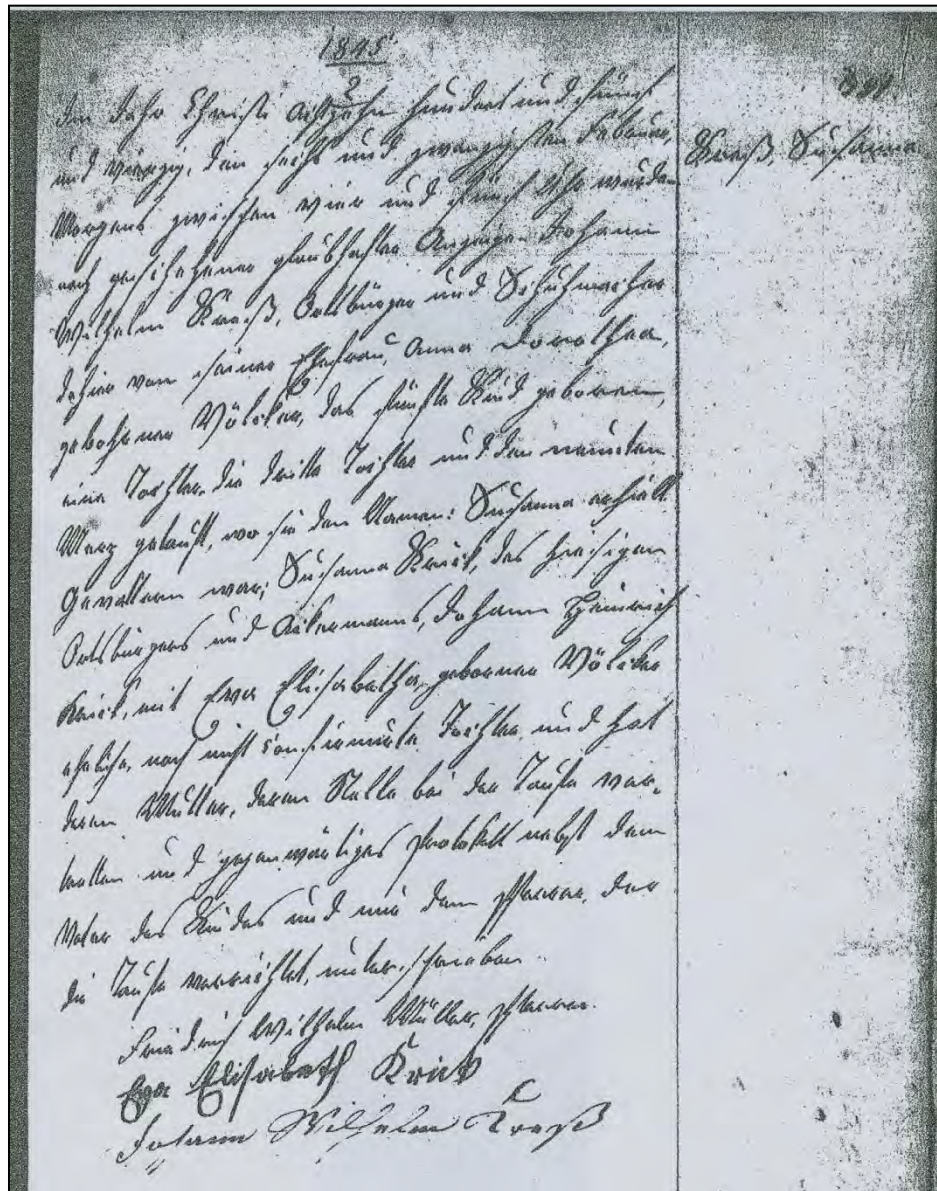 1845
Im Jahr Christi Achtzehn hundert und fünf
und vierzig, den sechs und zwanzigsten Februar,
Morgens zwischen vier und fünf Uhr wurde
nach geschehener glaubhafter Anzeige Johann
Wilhelm Kreß, Ortsbürger und Schuhmacher
dahier von seiner Ehefrau, Anna Dorothea,
gebohrner Völcker, das fünfte Kind geboren,
eine Tochter, die dritte Tochter und den neunten
Merz getauft, wo sie den Namen: Susanna erhielt.
Gevatterin war; Susanna Krick, des hiesigen
Ortsbürgers und Ackermanns, Johann Heinrich
Krick, mit Eva Elisabetha, geborner Völcker
eheliche, noch nicht confirmirte Tochter und hat
deren Mutter, deren Stelle bei der Taufe ver-
tretten und gegenwärtiges Protokoll nebst dem
Vater des Kindes und mir dem Pfarrer, der
die Taufe verrichtet, unterschrieben.
Friedrich Wilhelm Müller, Pfarrer.
Eva Elisabeth Krick
Johann Wilhelm Kreß
Kreß, Susanna